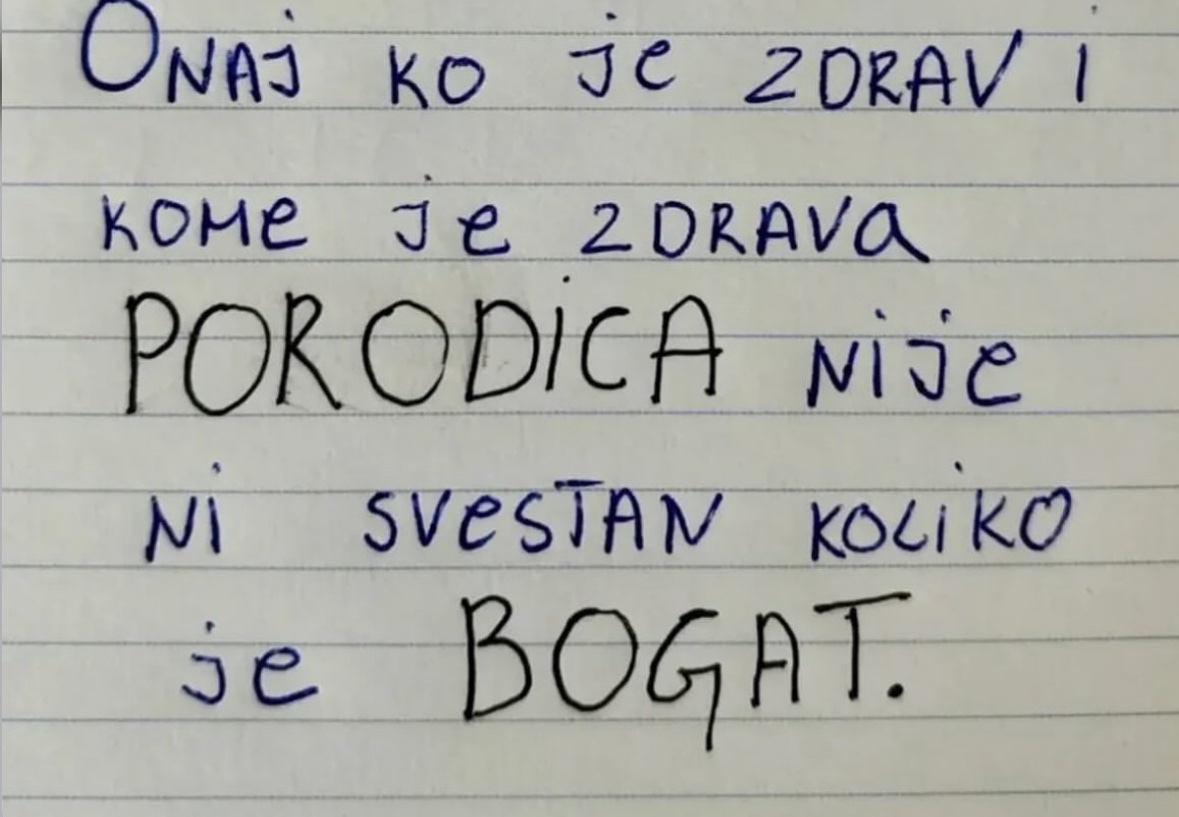 Onaj ko je ZDRAV i
kome je zdrava
PORODICA nije
ni svestan koliko
je BOGAT.